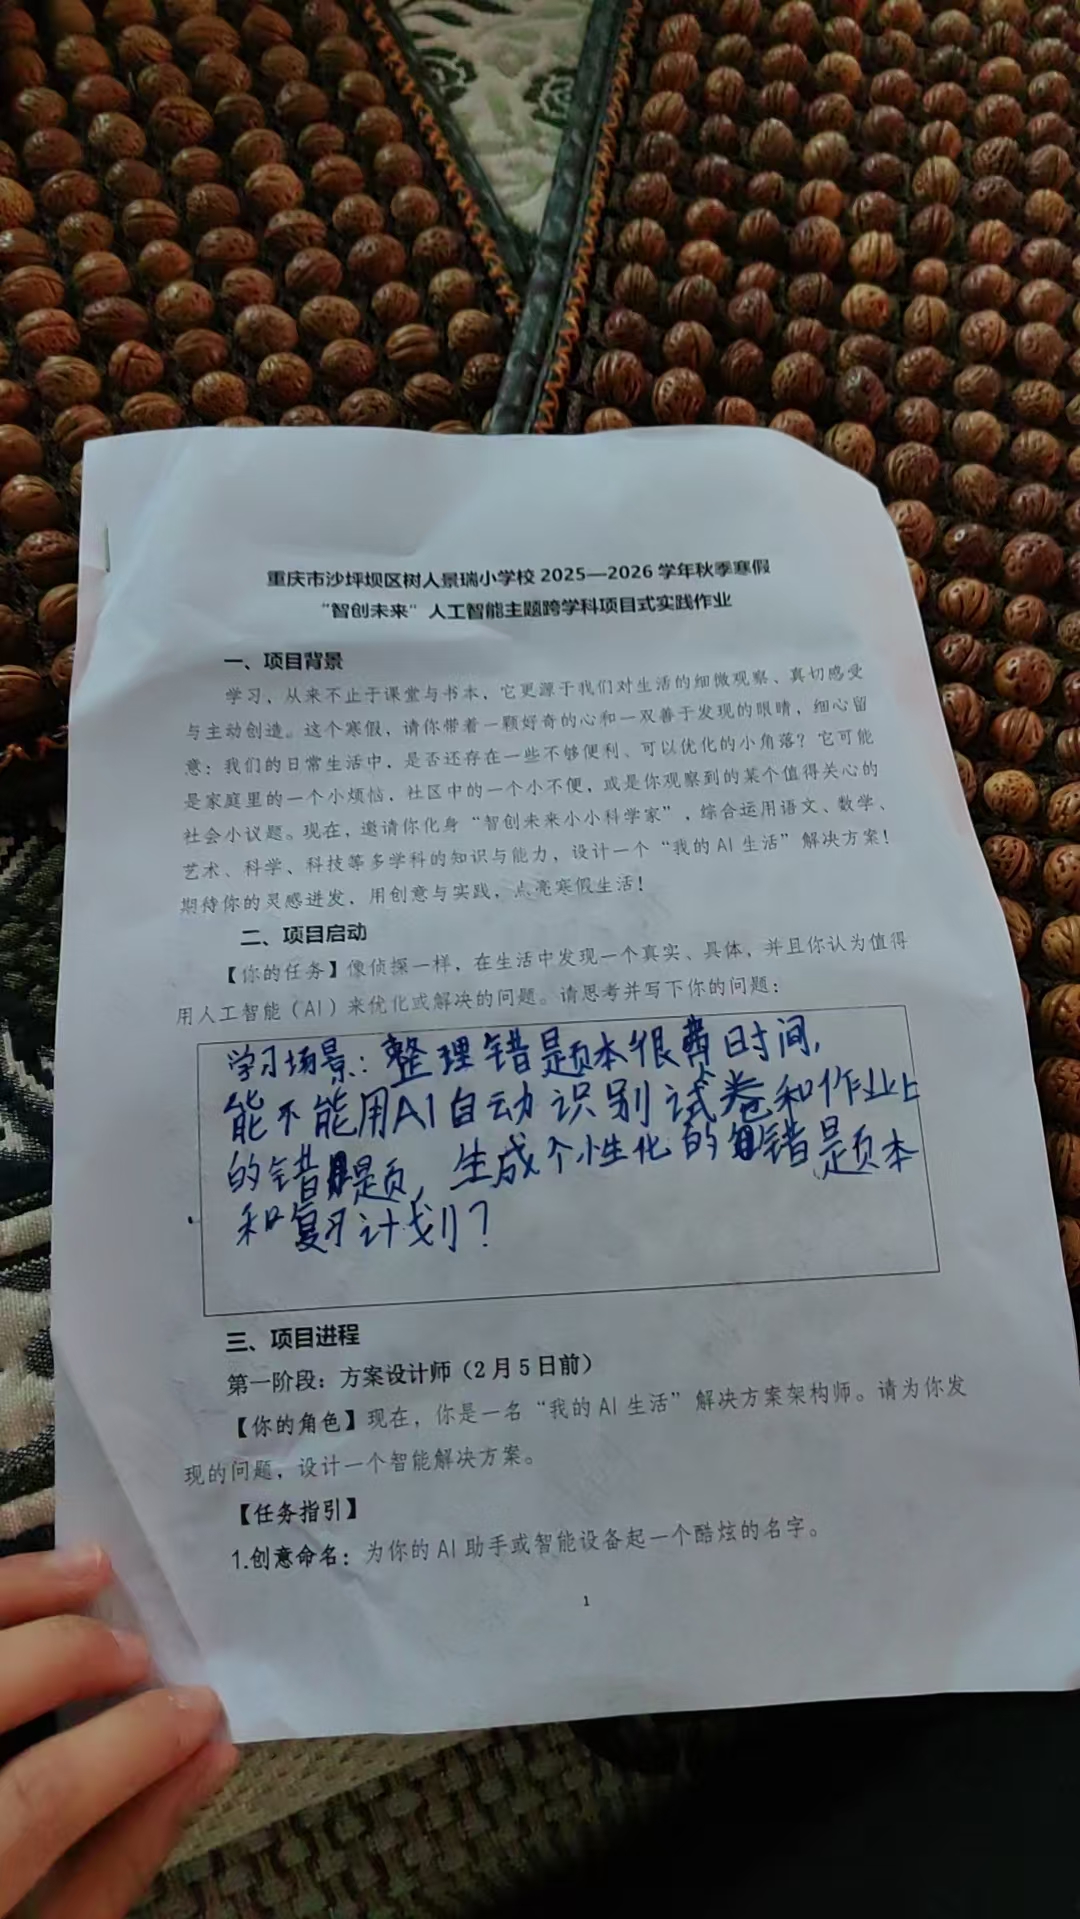 重庆市沙坪坝区树人景瑞小学校 2025—2026 学年秋季寒假
“智创未来”人工智能主题跨学科项目式实践作业
一、项目背景
学习，从来不止于课堂与书本，它更源于我们对生活的细微观察、真切感受
与主动创造。这个寒假，请你带着一颗好奇的心和一双善于发现的眼睛，细心留
意：我们的日常生活中，是否还存在一些不够便利、可以优化的小角落？它可能
是家庭里的一个小烦恼，社区中的一个小不便，或是你观察到的某个值得关心的
社会小议题。现在，邀请你化身“智创未来小小科学家”，综合运用语文、数学、
艺术、科学、科技等多学科的知识与能力，设计一个“我的 AI 生活”解决方案！
期待你的灵感迸发，用创意与实践，点亮寒假生活！
二、项目启动
【你的任务】像侦探一样，在生活中发现一个真实、具体，并且你认为值得
用人工智能（AI）来优化或解决的问题。请思考并写下你的问题：
学习场景：整理错题本很费时间，
能不能用AI自动识别试卷和作业上
的错题，生成个性化的错题本
和复习计划？
三、项目进程
第一阶段：方案设计师（2 月 5 日前）
【你的角色】现在，你是一名“我的 AI 生活”解决方案架构师。请为你发
现的问题，设计一个智能解决方案。
【任务指引】
1.创意命名：为你的 AI 助手或智能设备起一个酷炫的名字。
1